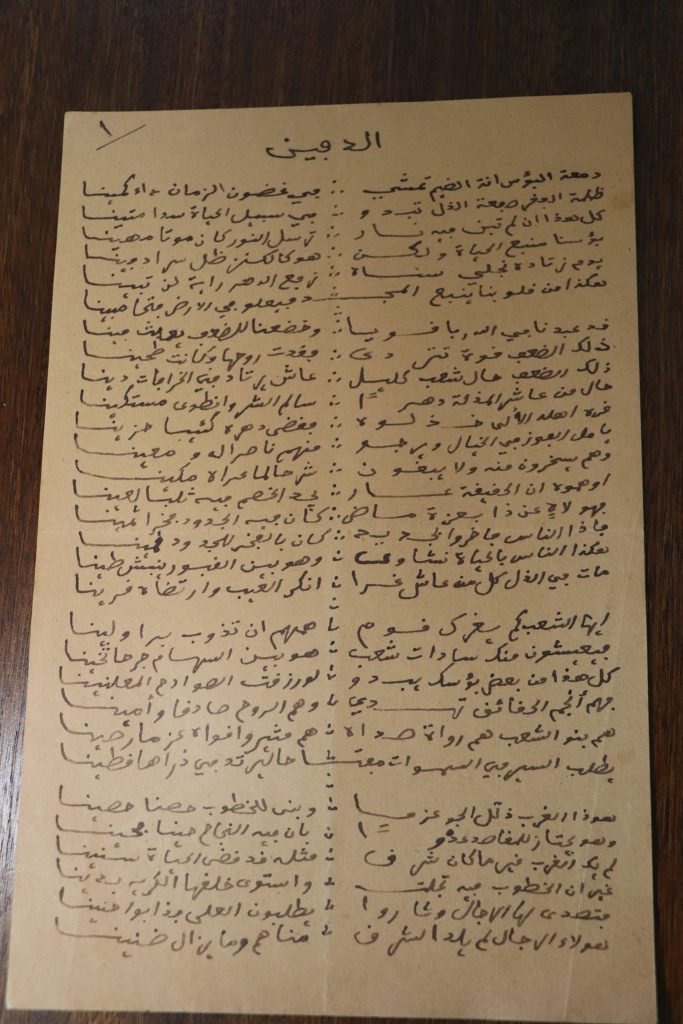 ١
الدفين
دمعة البؤس انة الضيم تمشي ∴ في غضون الزمان داء كمينا
ظلمة الفقر صفعة الذل تبدو ∴ في سبيل الحياة سدا متينا
كل هذا ان لم تبن فيه نار ∴ ترسل النور كان موتا مهينا
بؤسنا منبع الحياة ولكن ∴ هو كالكنز ظل سرا دفينا
يوم نرتاده تجلى سناه ∴ نرفع الدهر راية لن تبينا
هكذا من قلوبنا ينبع المجد فيعلو في الارض فتحا مبينا
قد عبدنا في الله ربا قويا ∴ وخضعنا للضعف يعبث فينا
ذلك الضعف قوة تتردى ∴ فقدت روحها وكانت طحينا
ذلك الضعف حال شعب كليل ∴ عاش يرتاد في الخرافات دينا
حال من عاش المذلة دهرا ∴ سالم الشر وانطوى مستكينا
غره اهله الألى خذلوه ∴ فقضى دهره كئيبا حزينا
يأمل الفوز في الخيال ويرجو ∴ منهم ناصرا له ومعينا
وهم يسخرون منه ولا يبغون ∴ شرحا لما عراه مكينا
اوهموه ان الحقيقة عار ∴ يجد الخصم فيه ثلبا لعينا
جهولاه عن ذا بعزة ماضي ∴ كان فيه الجدود فخرا ثمينا
فاذا الناس فاخروا بجديد ∴ كان بالفخر للجدود قمينا
هكذا الناس بالحياة نشاوى ∴ وهو بين القبور ينبش طينا
مات في الذل كل من عاش غرا ∴ انكر الغيب وارتضاه قرينا
ايها الشعب كم يغرك قوم ∴ همهم ان تذوب يرا ولينا
فيعيشون منك سادات شعب ∴ هو بين السهام جرحا ثخينا
كل هذا من بعض بؤسك يبدو ∴ لو رزقت الصوادح المعلنينا
فهم أنجم الحقائق تهدي ∴ وهم الروح صادقا وأمينا
هم بنو الشعب هم رواة صداه ∴ هم مثيرو افواه عزما رصينا
يطلب السير في السموات معتزا ∴ حاليرتد في ذراها قطينا
هوذا الغرب ذلل الجو عزما ∴ وبنى للخطوب حصنا حصينا
وهو يجتاز للمقاصد عدوا ∴ بان فيه النجاح حينا فحينا
لم يك الغرب غير ما كان شرق ∴ مثله قد قضى الحياة سنينا
غير ان الخطوب فيه تجلت ∴ واستوى خلفها الكريه بدينا
فتصدى لها الرجال وثاروا ∴ يطلبون العلى فذابوا حنينا
هولاء الرجال لم يلد الشرق ∴ مناهم وما يزال ضنينا